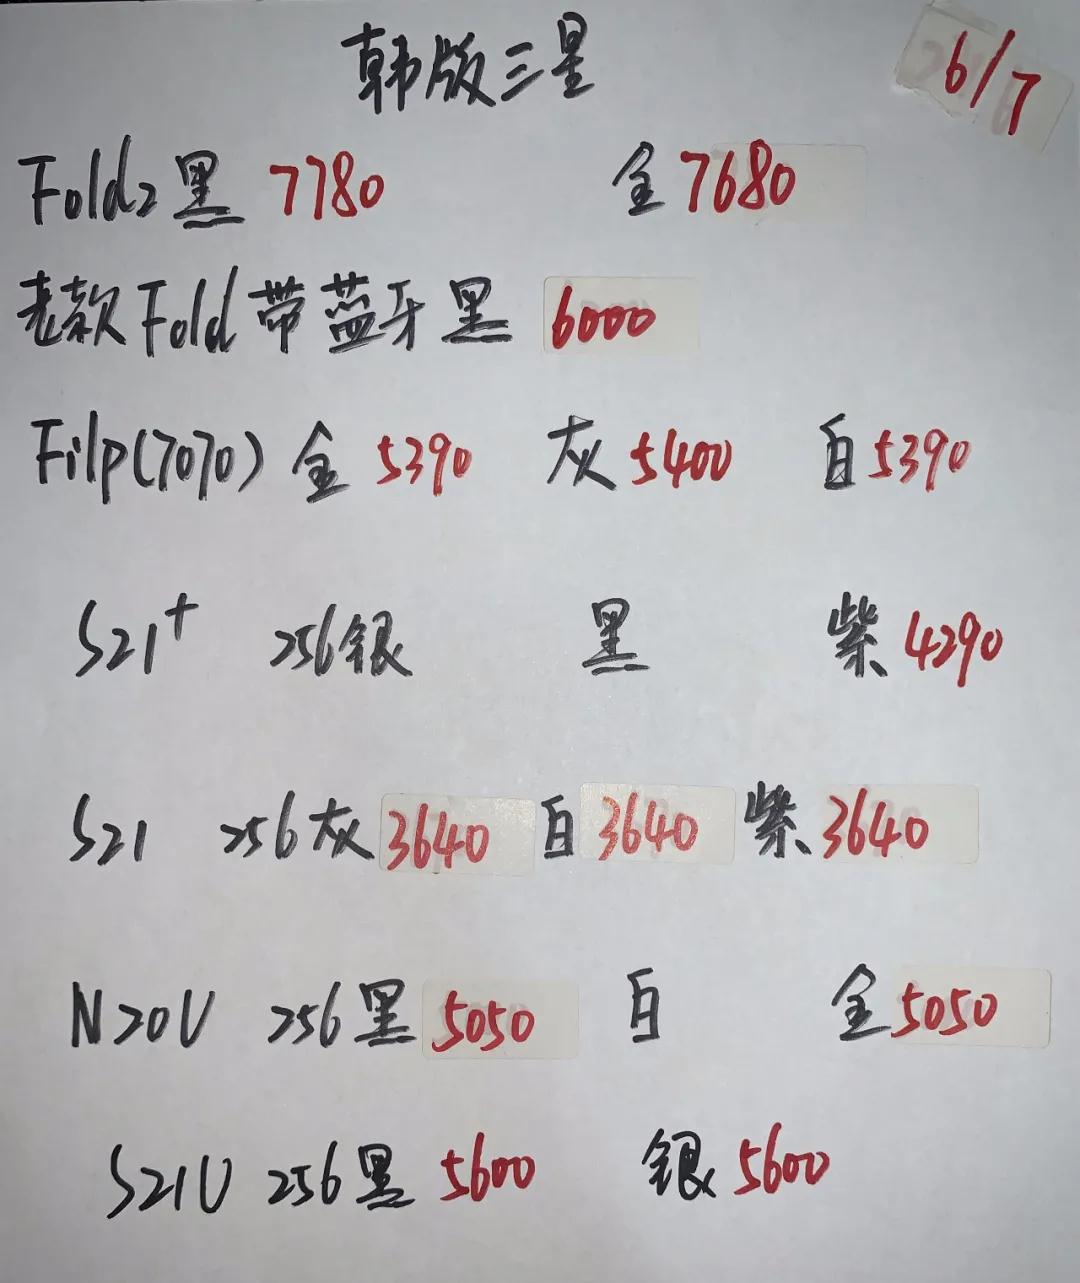 韩版三星 6/7
Fold2黑 7780 金7680
老款Fold带蓝牙黑 6000
Filp(7070) 金 5390 灰5400 白5390
S21+ 256银 黑 紫4290
S21 256灰3640 白3640 紫3640
N20U 256黑5050 白 金5050
S21U 256黑 5600 银5600